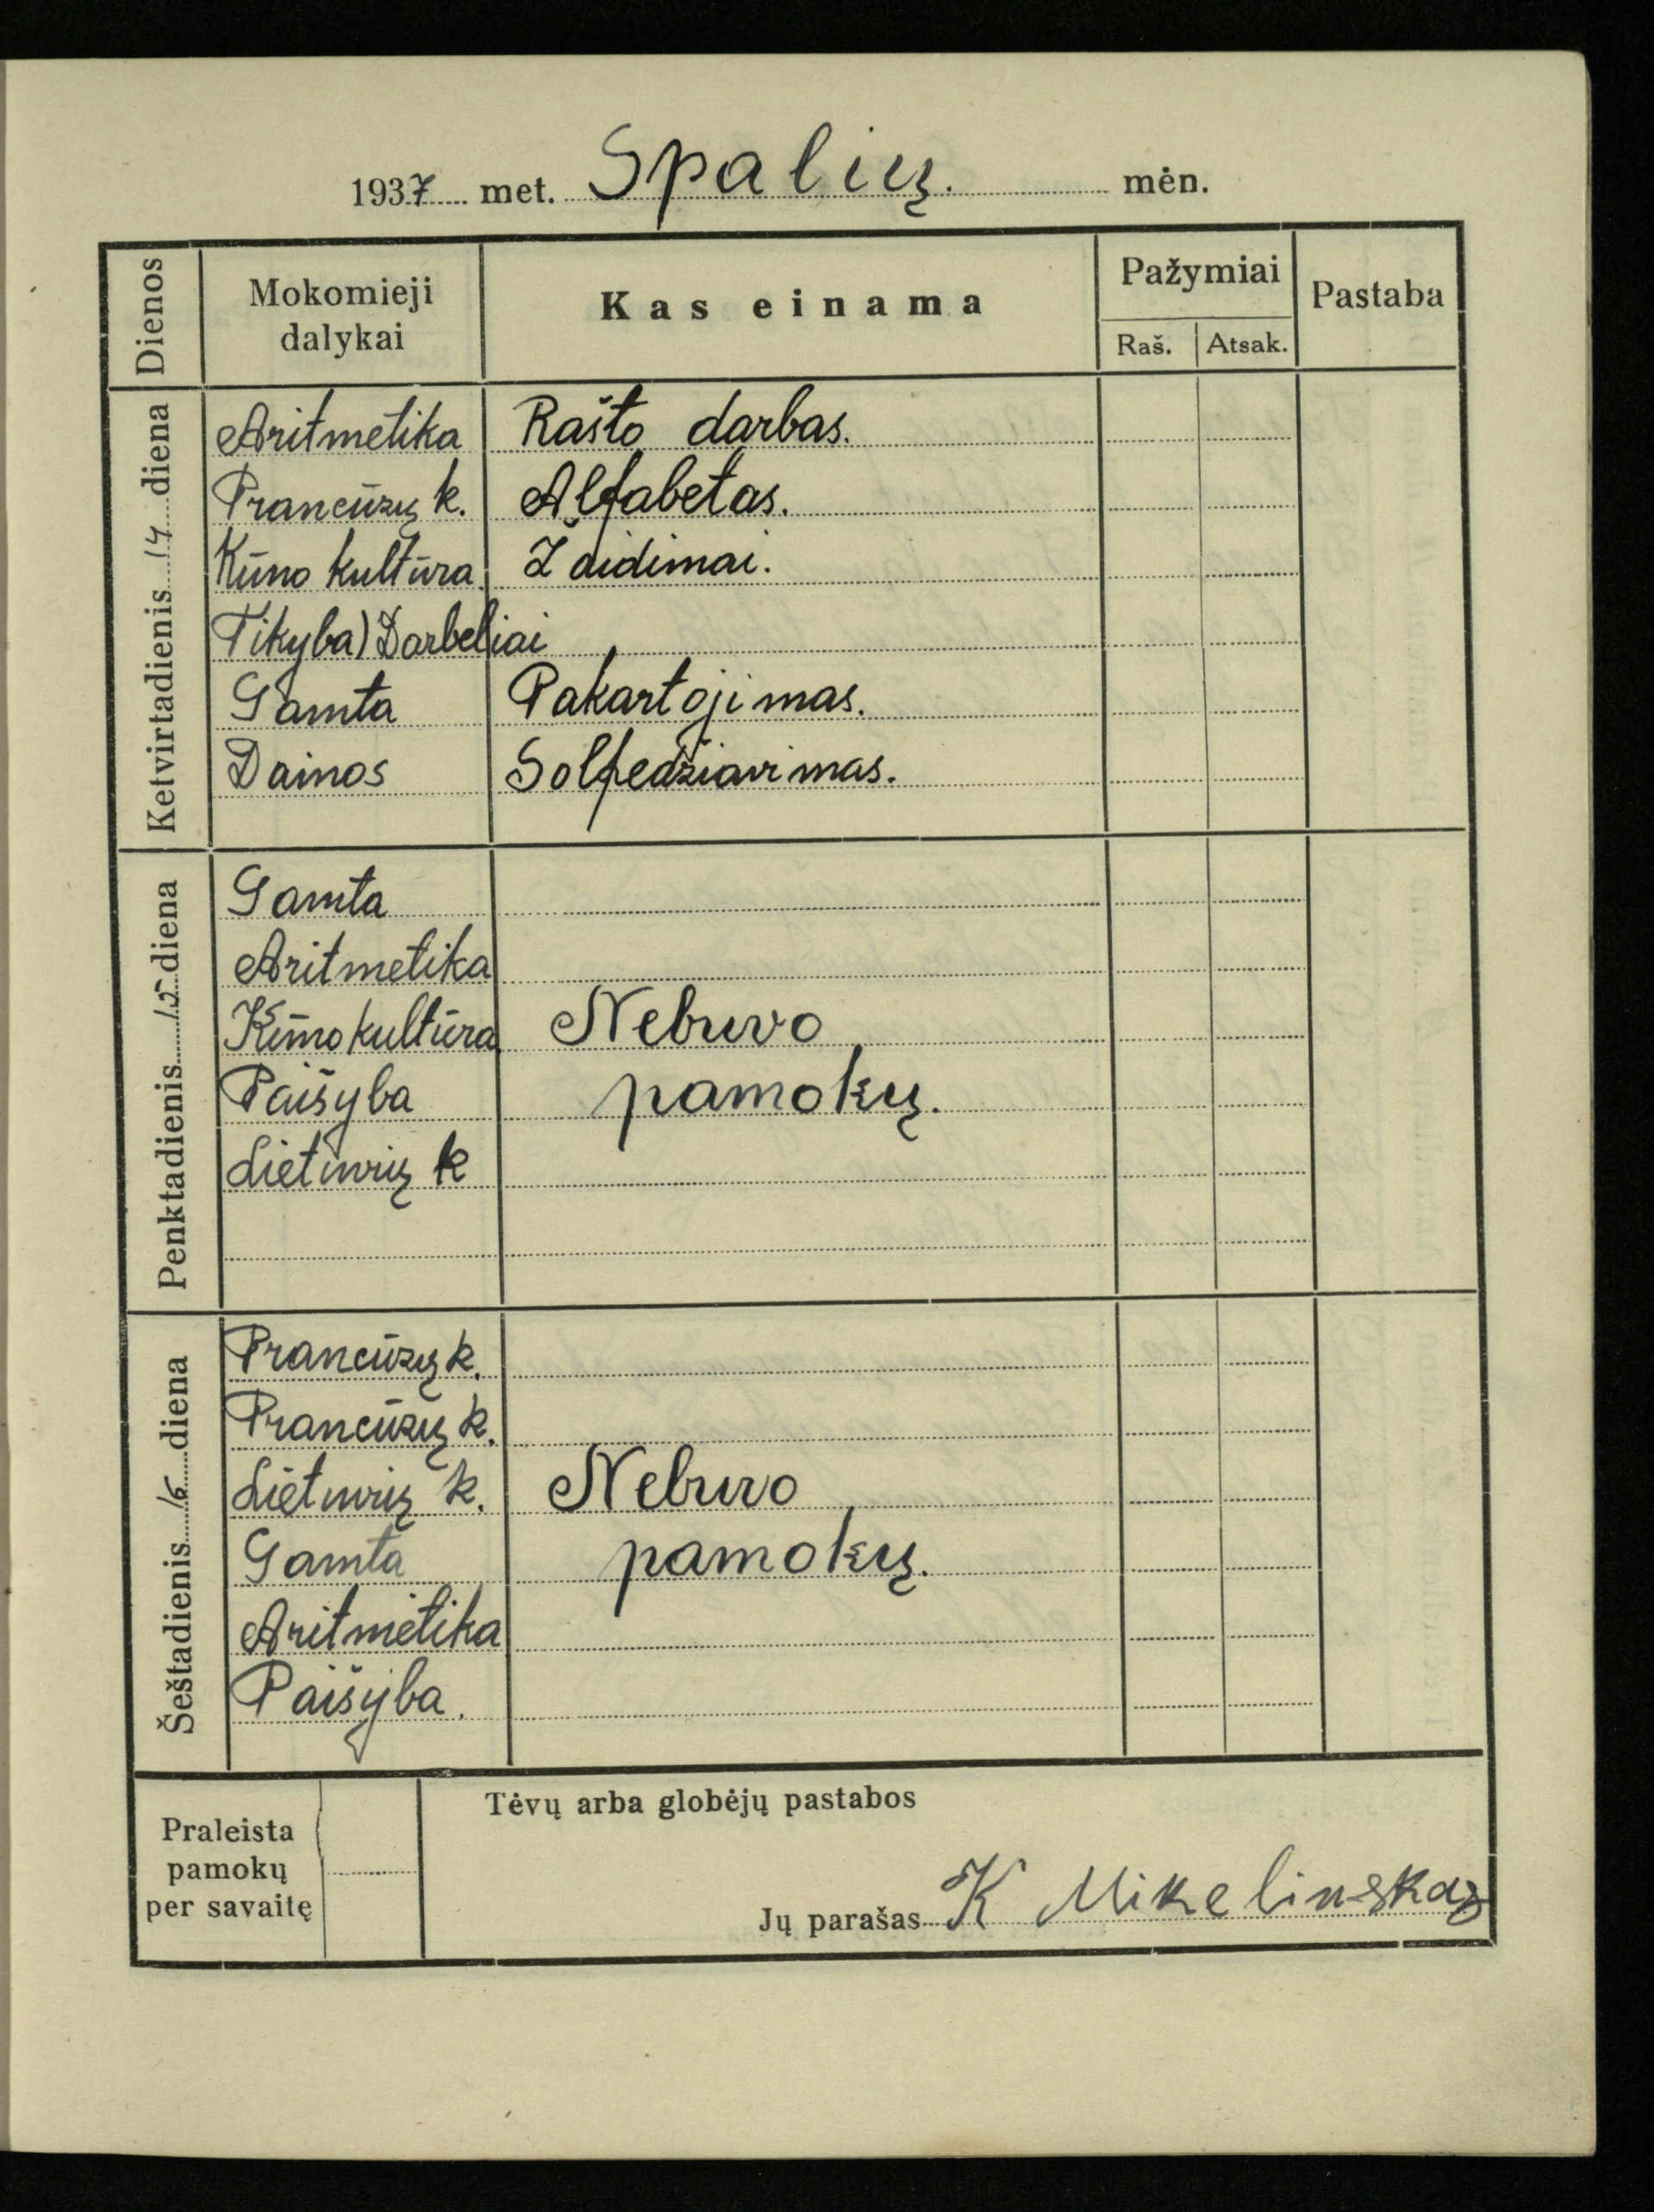 1937 met. Spalių. mėn.
Dienos
Mokomieji dalykai
Kas einama
Pažymiai
Raš. Atsak.
Pastaba
Ketvirtadienis 14 diena
Aritmetika Rašto darbas.
Prancūzų k. Alfabetas.
Kūno kultūra Žaidimai.
Tikyba) Darbeliai
Gamta Pakartojimas.
Dainos Solfedžiavimas.
Penktadienis 15 diena
Gamta
Aritmetika
Kūno kultūra Nebuvo
Paišyba pamokų.
Lietuvių k
Šeštadienis 16 diena
Prancūzų k.
Prancūzų k.
Lietuvių k. Nebuvo
Gamta pamokų.
Aritmetika
Paišyba.
Praleista
pamokų
per savaitę
Tėvų arba globėjų pastabos
Jų parašas K Mikelinskas